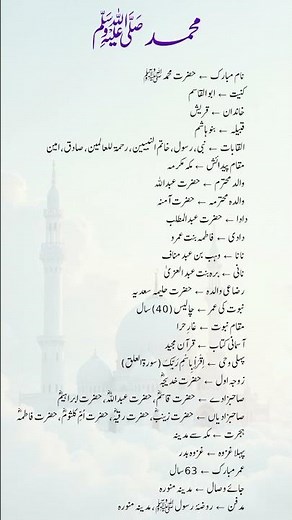 محمد صلی اللہ علیہ وسلم
نام مبارک ← حضرت محمد ﷺ
کنیت ← ابوالقاسم
خاندان ← قریش
قبیلہ ← بنو ہاشم
القابات ← نبی، رسول، خاتم النبیین، رحمۃ للعالمین، صادق، امین
مقام پیدائش ← مکہ مکرمہ
والد محترم ← حضرت عبداللہ
والدہ محترمہ ← حضرت آمنہ
دادا ← حضرت عبدالمطلب
دادی ← فاطمہ بنت عمرو
نانا ← وہب بن عبد مناف
نانی ← برہ بنت عبدالعزیٰ
رضاعی والدہ ← حضرت حلیمہ سعدیہ
نبوت کی عمر ← چالیس (40) سال
مقام نبوت ← غارِ حرا
آسمانی کتاب ← قرآن مجید
پہلی وحی ← اِقْرَاْ بِاسْمِ رَبِّكَ (سورۃ العلق)
زوجہ اول ← حضرت خدیجہؓ
صاحبزادے ← حضرت قاسمؓ، حضرت عبداللہؓ، حضرت ابراہیمؓ
صاحبزادیاں ← حضرت زینبؓ، حضرت رقیہؓ، حضرت اُمِ کلثومؓ، حضرت فاطمہؓ
ہجرت ← مکہ سے مدینہ
پہلا غزوہ ← غزوہ بدر
عمر مبارک ← 63 سال
جائے وصال ← مدینہ منورہ
مدفن ← روضۂ رسول ﷺ، مدینہ منورہ